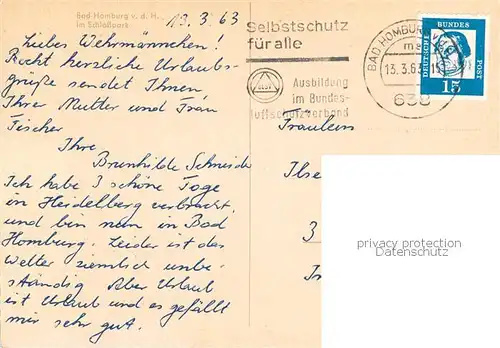 Bad Homburg v. d. H.
im Schloßpark
13.3.63
Liebes Wehrmännchen!
Recht herzliche Urlaubs-
grüße sendet Ihnen,
Ihrer Mutter und Frau
Fischer
Ihre
Brunhilde Schneider
Ich habe 3 schöne Tage
in Heidelberg verbracht
und bin nun in Bad
Homburg. Leider ist das
Wetter ziemlich unbe-
ständig Aber Urlaub
ist Urlaub und es gefällt
mir sehr gut.
Selbstschutz
für alle
Ausbildung
im Bundes-
luftschutzverband
BAD HOMBURG
13.3.63
638
DEUTSCHE
BUNDES
POST
15
Fräulein
Ilse
3
privacy protection
Datenschutz